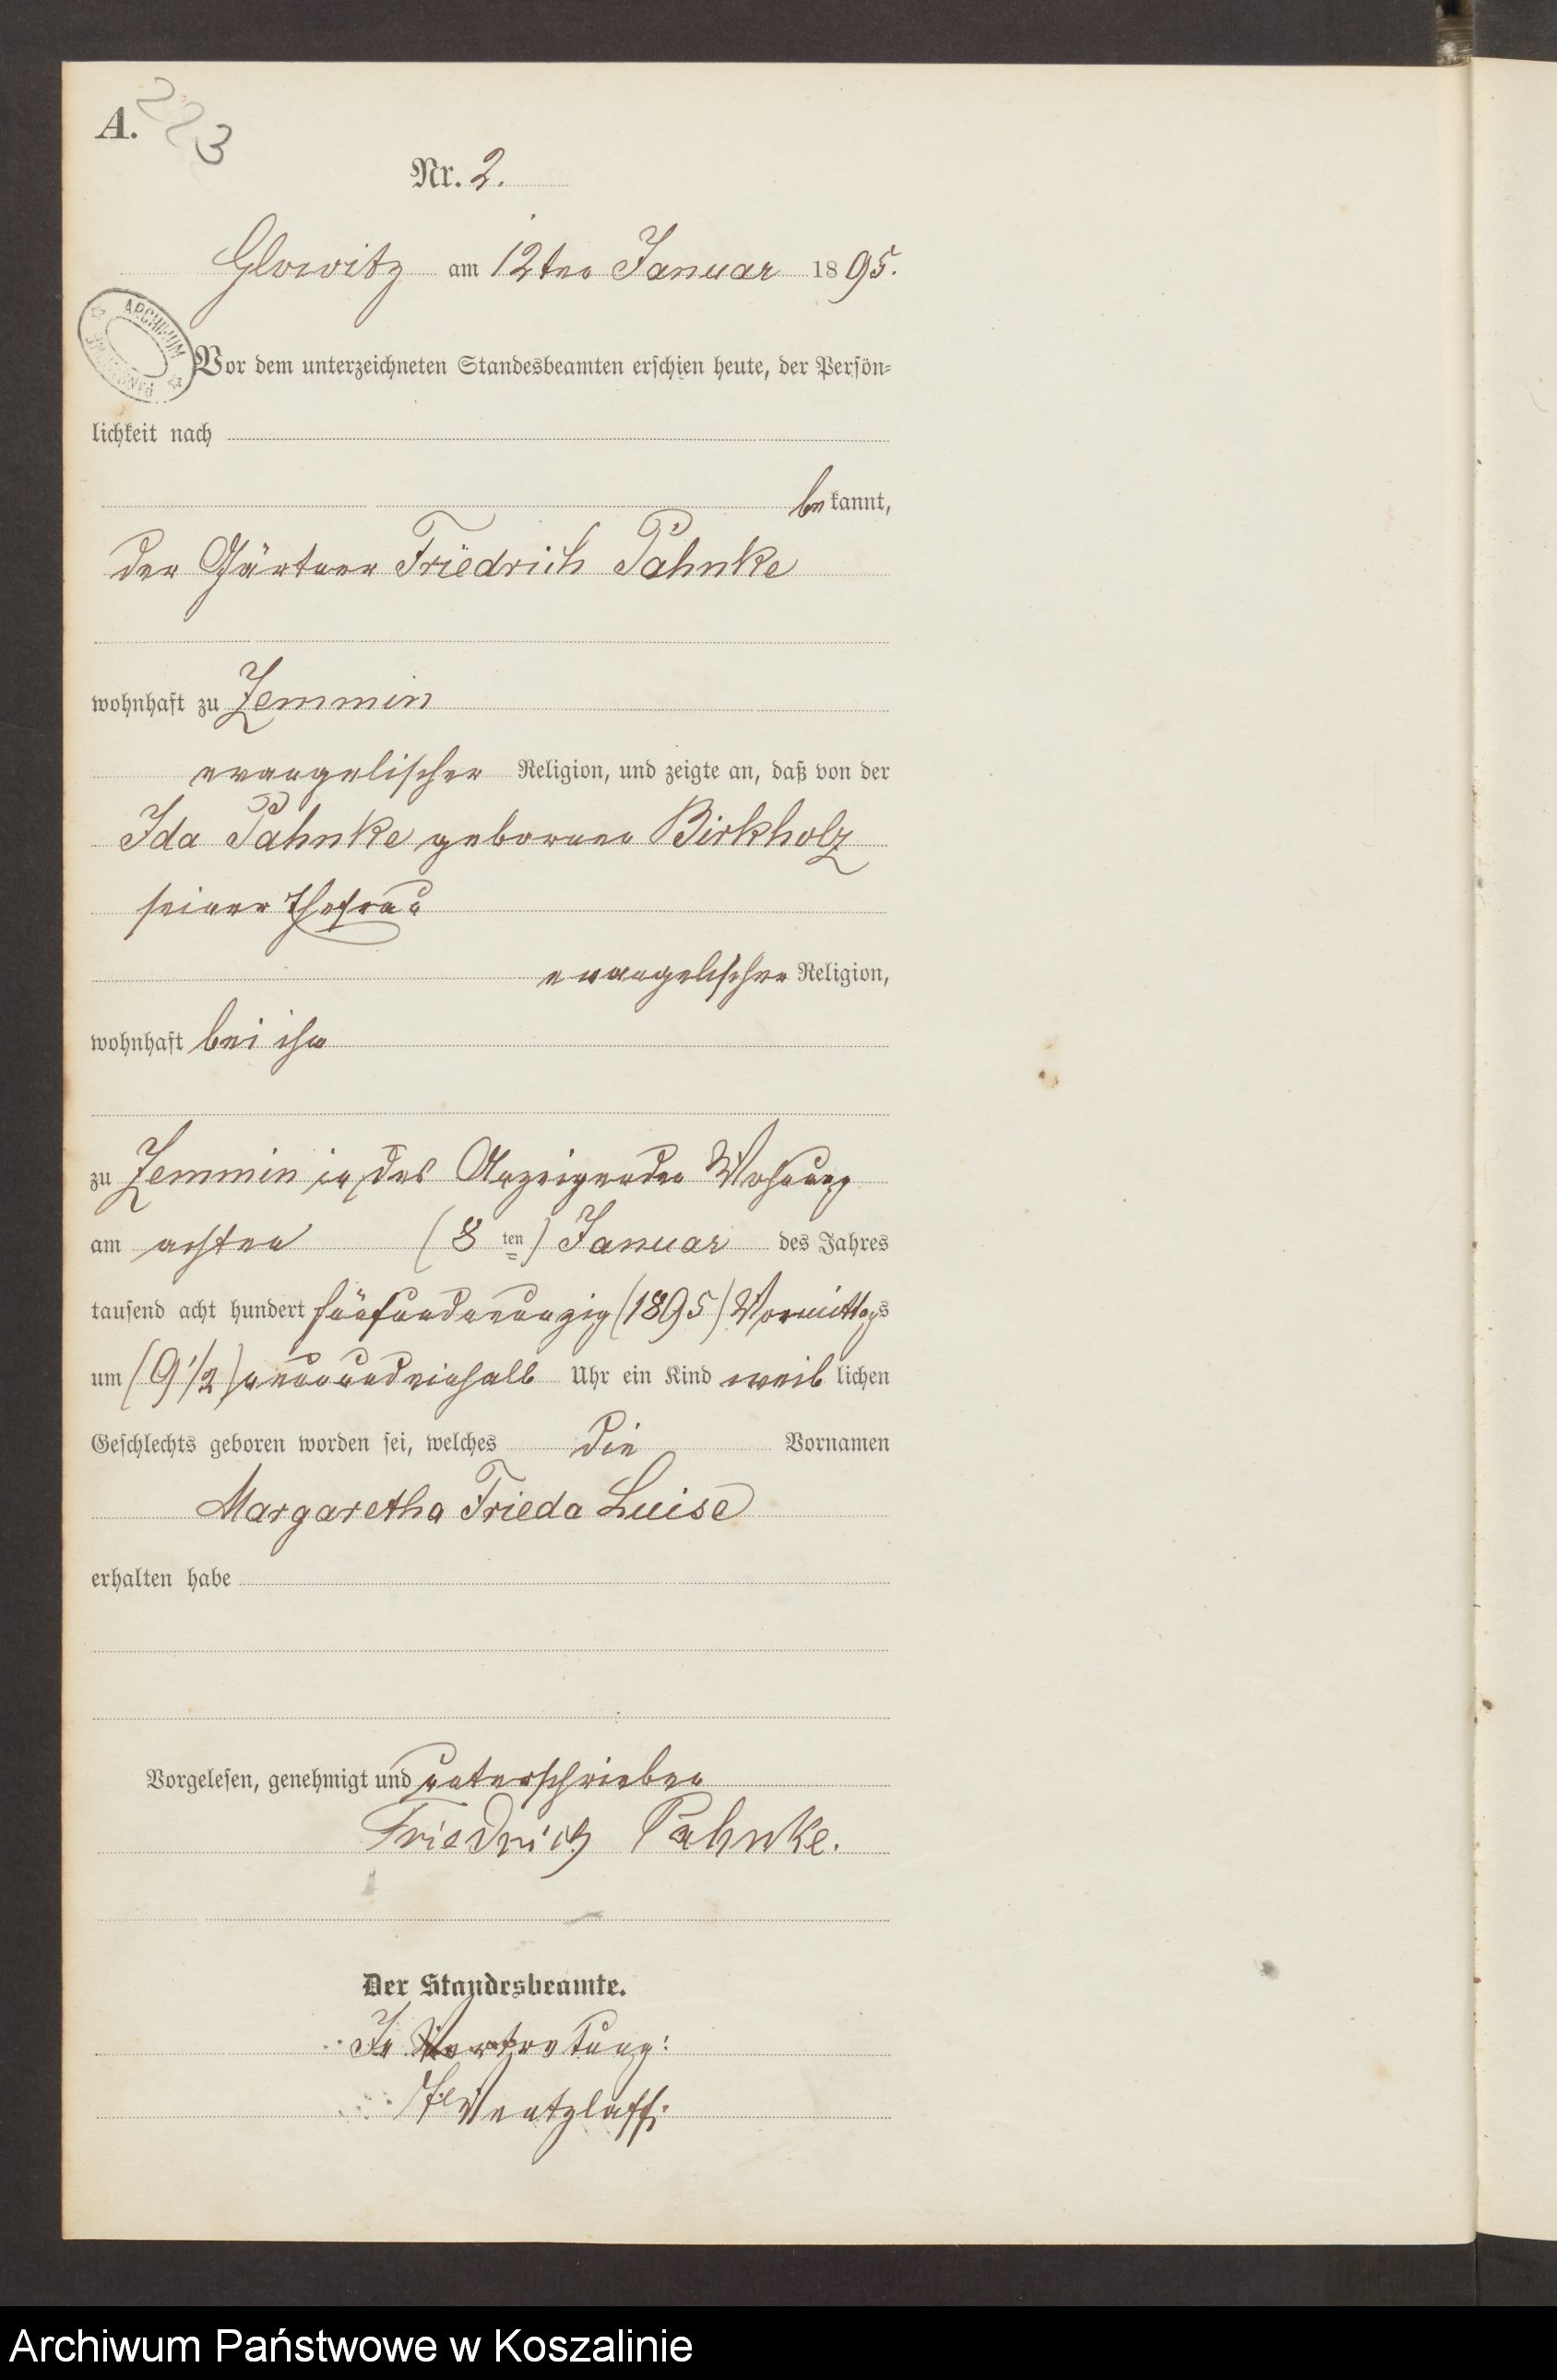 A.
223
Nr. 2.
Glowitz am 12ten Januar 1895.
ARCHIWUM
Vor dem unterzeichneten Standesbeamten erschien heute, der Persön-
lichkeit nach
bekannt,
der Gärtner Friedrich Pahnke
wohnhaft zu Zemmin
evangelischer Religion, und zeigte an, daß von der
Ida Pahnke geborenen Birkholz
seiner Ehefrau
evangelischer Religion,
wohnhaft bei ihm
zu Zemmin in des Anzeigenden Wohnung
am achten (8 ten) Januar des Jahres
tausend acht hundert fünfundneunzig (1895) Vormittags
um (9 1/2) neunundeinhalb Uhr ein Kind weiblichen
Geschlechts geboren worden sei, welches die Vornamen
Margaretha Frieda Luise
erhalten habe
Vorgelesen, genehmigt und unterschrieben
Friedrich Pahnke.
Der Standesbeamte.
In Vertretung:
Wentzlaff.
Archiwum Państwowe w Koszalinie